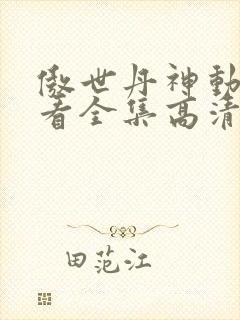 傲世丹神動
看全集高清
田范江